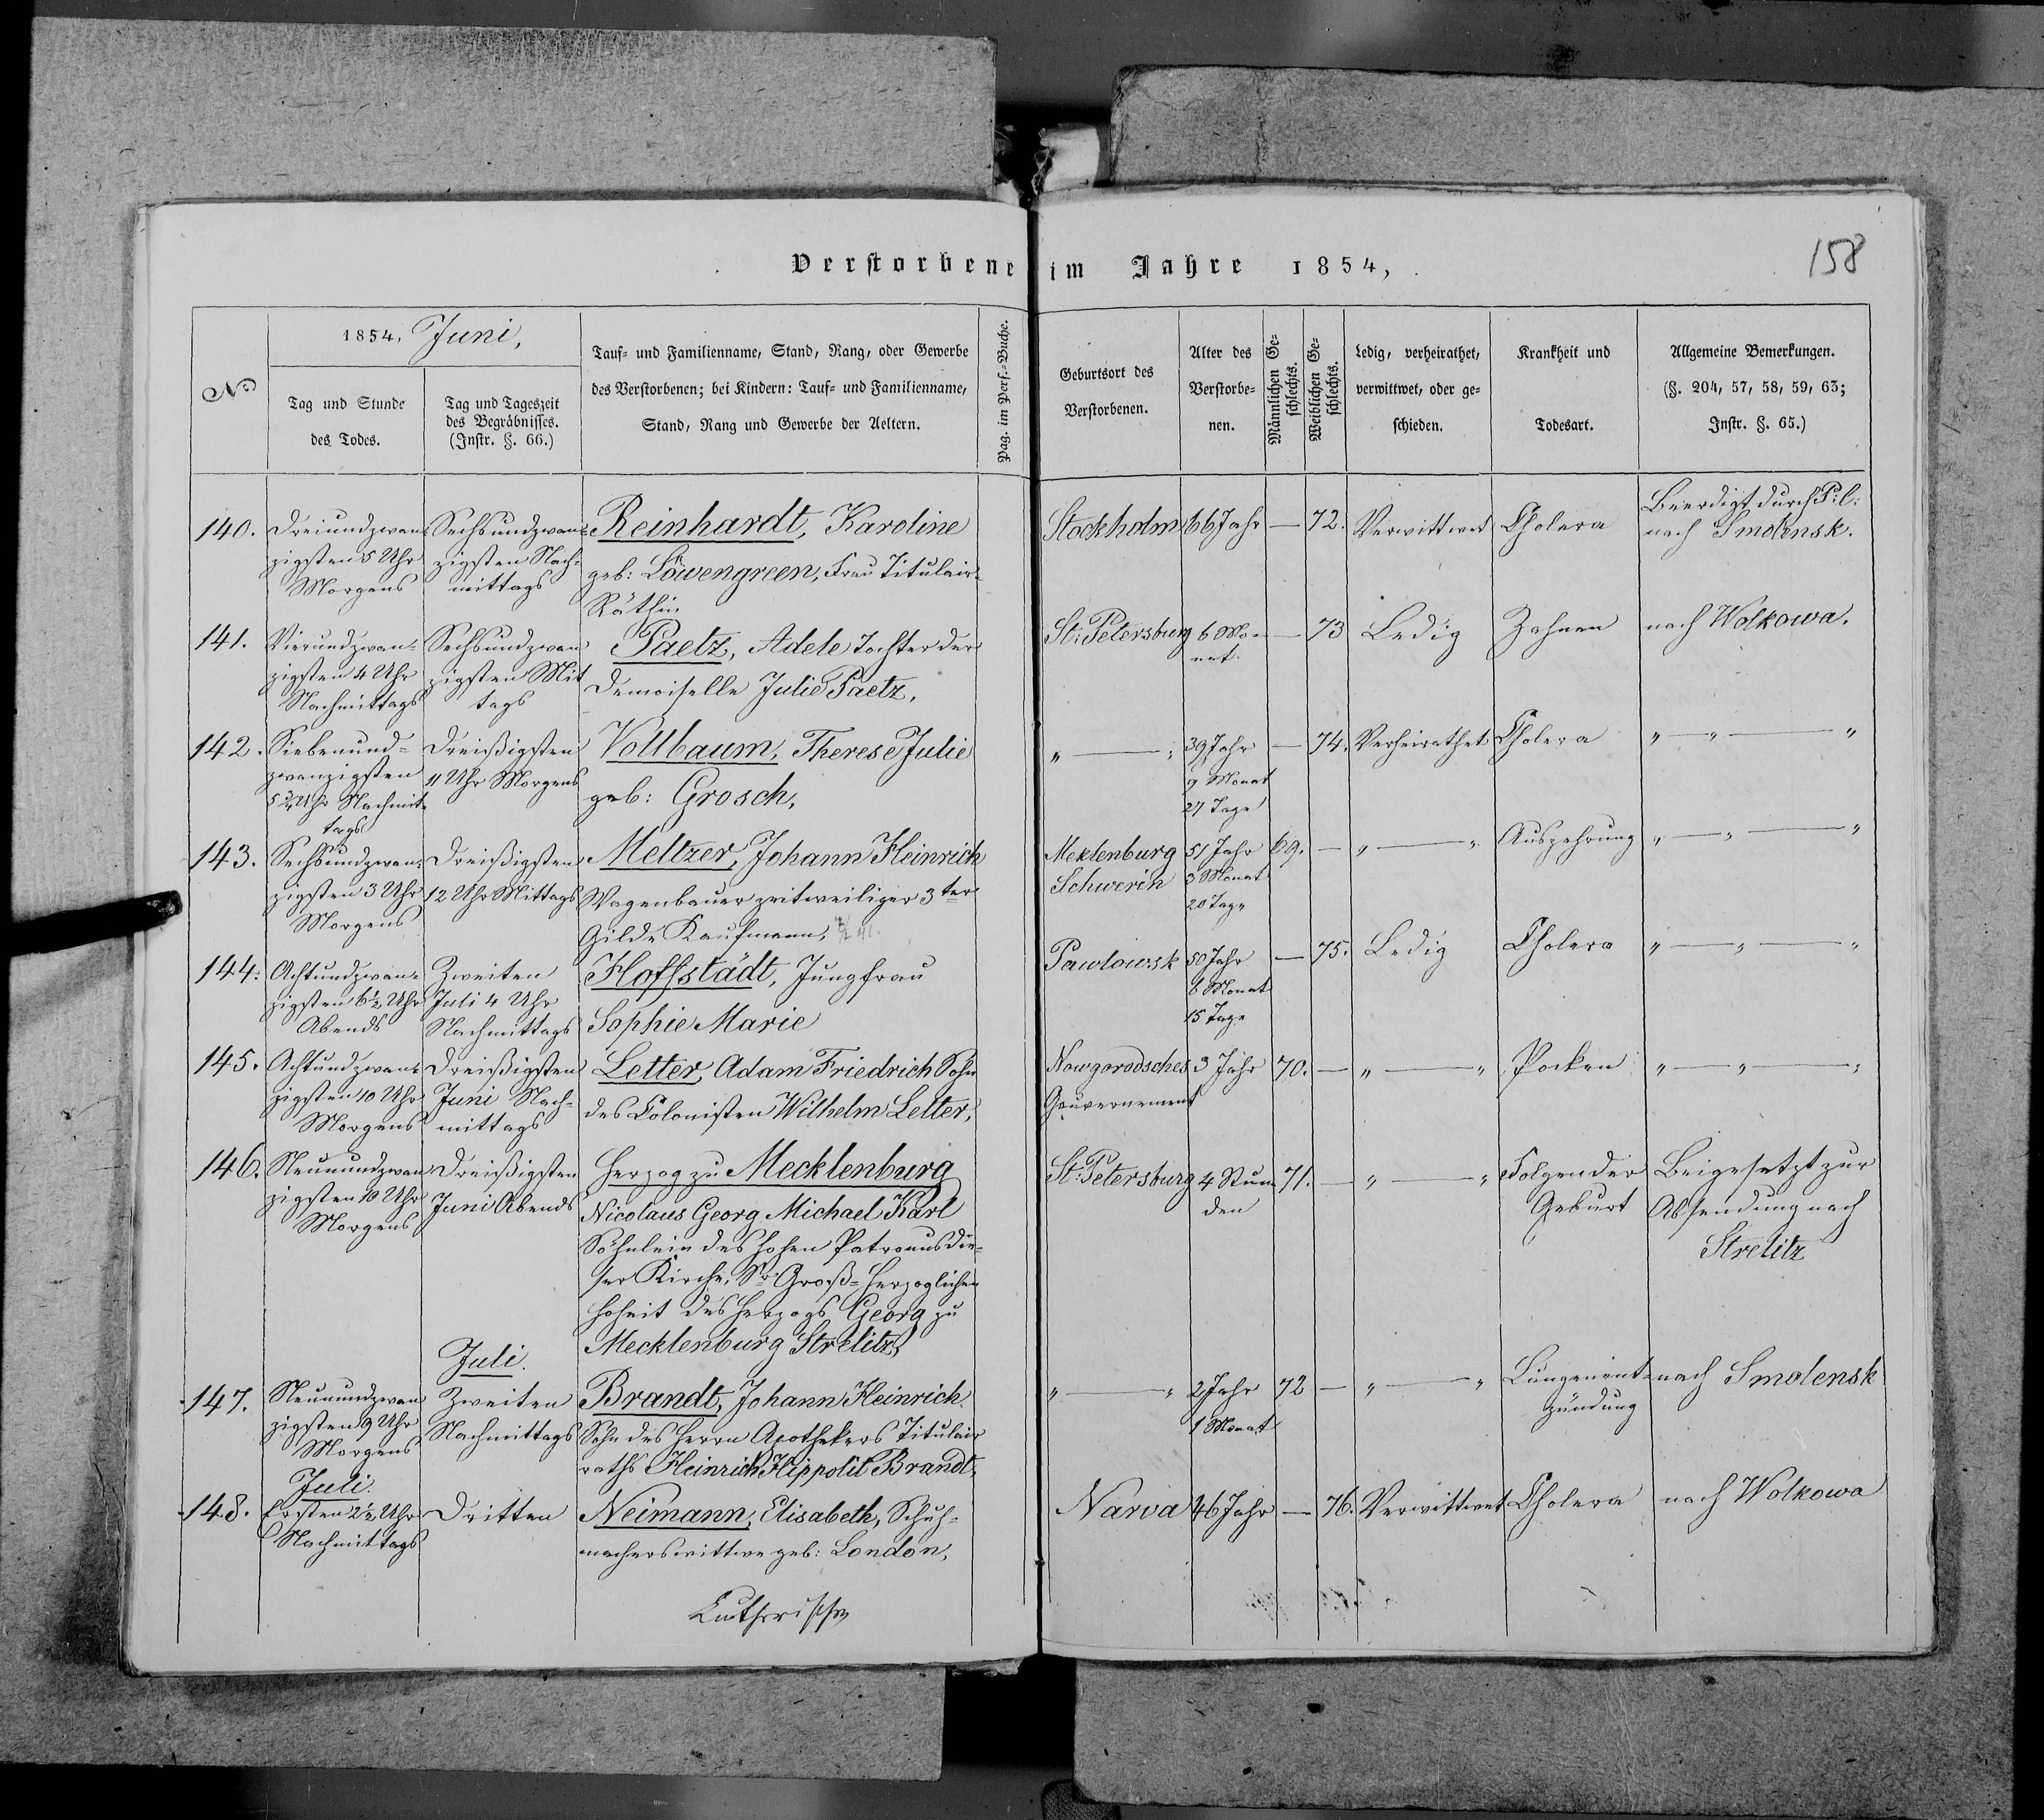 Verstorbene im Jahre 1854,
158
No
1854, Juni,
Tag und Stunde
des Todes.
Tag und Tageszeit
des Begräbnisses.
(Instr. §. 66.)
Tauf- und Familienname, Stand, Rang, oder Gewerbe
des Verstorbenen; bei Kindern: Tauf- und Familienname,
Stand, Rang und Gewerbe der Aeltern.
Pag. im Pers.-Buche.
Geburtsort des
Verstorbenen.
Alter des
Verstorbe-
nen.
Männlichen Ge-
schlechts.
Weiblichen Ge-
schlechts.
Ledig, verheirathet,
verwittwet, oder ge-
schieden.
Krankheit und
Todesart.
Allgemeine Bemerkungen.
(§. 204, 57, 58, 59, 63;
Instr. §. 65.)
140.
Dreiundzwan-
zigsten 5 Uhr
Morgens
Sechsundzwan-
zigsten Nach-
mittags
Reinhardt, Karoline
geb: Löwengreen, Frau Titulair-
Räthin
Stockholm
66 Jahr
—
72.
Verwittwet
Cholera
Beerdigt durch P: C:
nach Smolensk.
141.
Vierundzwan-
zigsten 4 Uhr
Nachmittags
Sechsundzwan
zigsten Mit
tags
Paetz, Adele Tochter der
Demoiselle Julie Paetz,
St: Petersburg
6 Mo-
nat.
—
73
Ledig
Zahnen
nach Wolkowa.
142.
Siebenund-
zwanzigsten
5 3/4 Uhr Nachmit-
tags
Dreißigsten
11 Uhr Morgens
Vollbaum, Therese Julie
geb: Grosch,
„ — „
39 Jahr
9 Monat
27 Tage
—
74.
Verheirathet
Cholera
„ — „ — „
143.
Sechsundzwan-
zigsten 3 Uhr
Morgens
Dreißigsten
12 Uhr Mittags
Meltzer, Johann Heinrich
Wagenbauer zeitweiliger 3ter
Gilde Kaufmann,
Meklenburg
Schwerin
51 Jahr
3 Monat
20 Tage
69.
—
„ — „
Auszehrung
„ — „ — „
144.
Achtundzwan-
zigsten 6 1/2 Uhr
Abends
Zweiten
Juli 4 Uhr
Nachmittags
Hoffstädt, Jungfrau
Sophie Marie
Pawlowsk
50 Jahr
6 Monat
15 Tage
—
75.
Ledig
Cholera
„ — „ — „
145.
Achtundzwan-
zigsten 10 Uhr
Morgens
Dreißigsten
Juni Nach-
mittags
Letter, Adam Friedrich Sohn
des Colonisten Wilhelm Letter,
Nowgorodsches
Gouvernement
3 Jahr
70.
—
„ — „
Pocken
„ — „ — „
146.
Neunundzwan
zigsten 10 Uhr
Morgens
Dreißigsten
Juni Abends
Herzog zu Mecklenburg
Nicolaus Georg Michael Karl
Söhnlein des hohen Patronus die-
ser Kirche, Sr Groß-Herzoglichen
Hoheit des Herzogs Georg zu
Mecklenburg Strelitz,
St: Petersburg
4 Stun
den
71.
—
„ — „
Folgen der
Geburt
Beigesetzt zur
Absendung nach
Strelitz
147.
Neunundzwan
zigsten 9 Uhr
Morgens
Juli.
Zweiten
Nachmittags
Brandt, Johann Heinrich
Sohn des Herrn Apothekers Titulair
raths Heinrich Hippolit Brandt,
„ — „
2 Jahr
1 Monat
72
—
„ — „
Lungenent-
zündung
nach Smolensk
Juli.
148.
Ersten 2 1/2 Uhr
Nachmittags
Dritten
Neimann, Elisabeth, Schuh-
macherswittwe geb: London,
Narva
46 Jahr
—
76.
Verwittwet
Cholera
nach Wolkowa